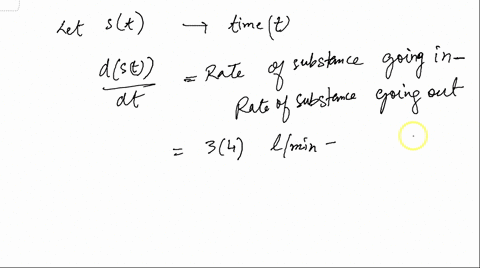 Let s(t) → time(t)
d(s(t))/dt = Rate of substance going in-
Rate of substance going out
= 3(4) l/min -